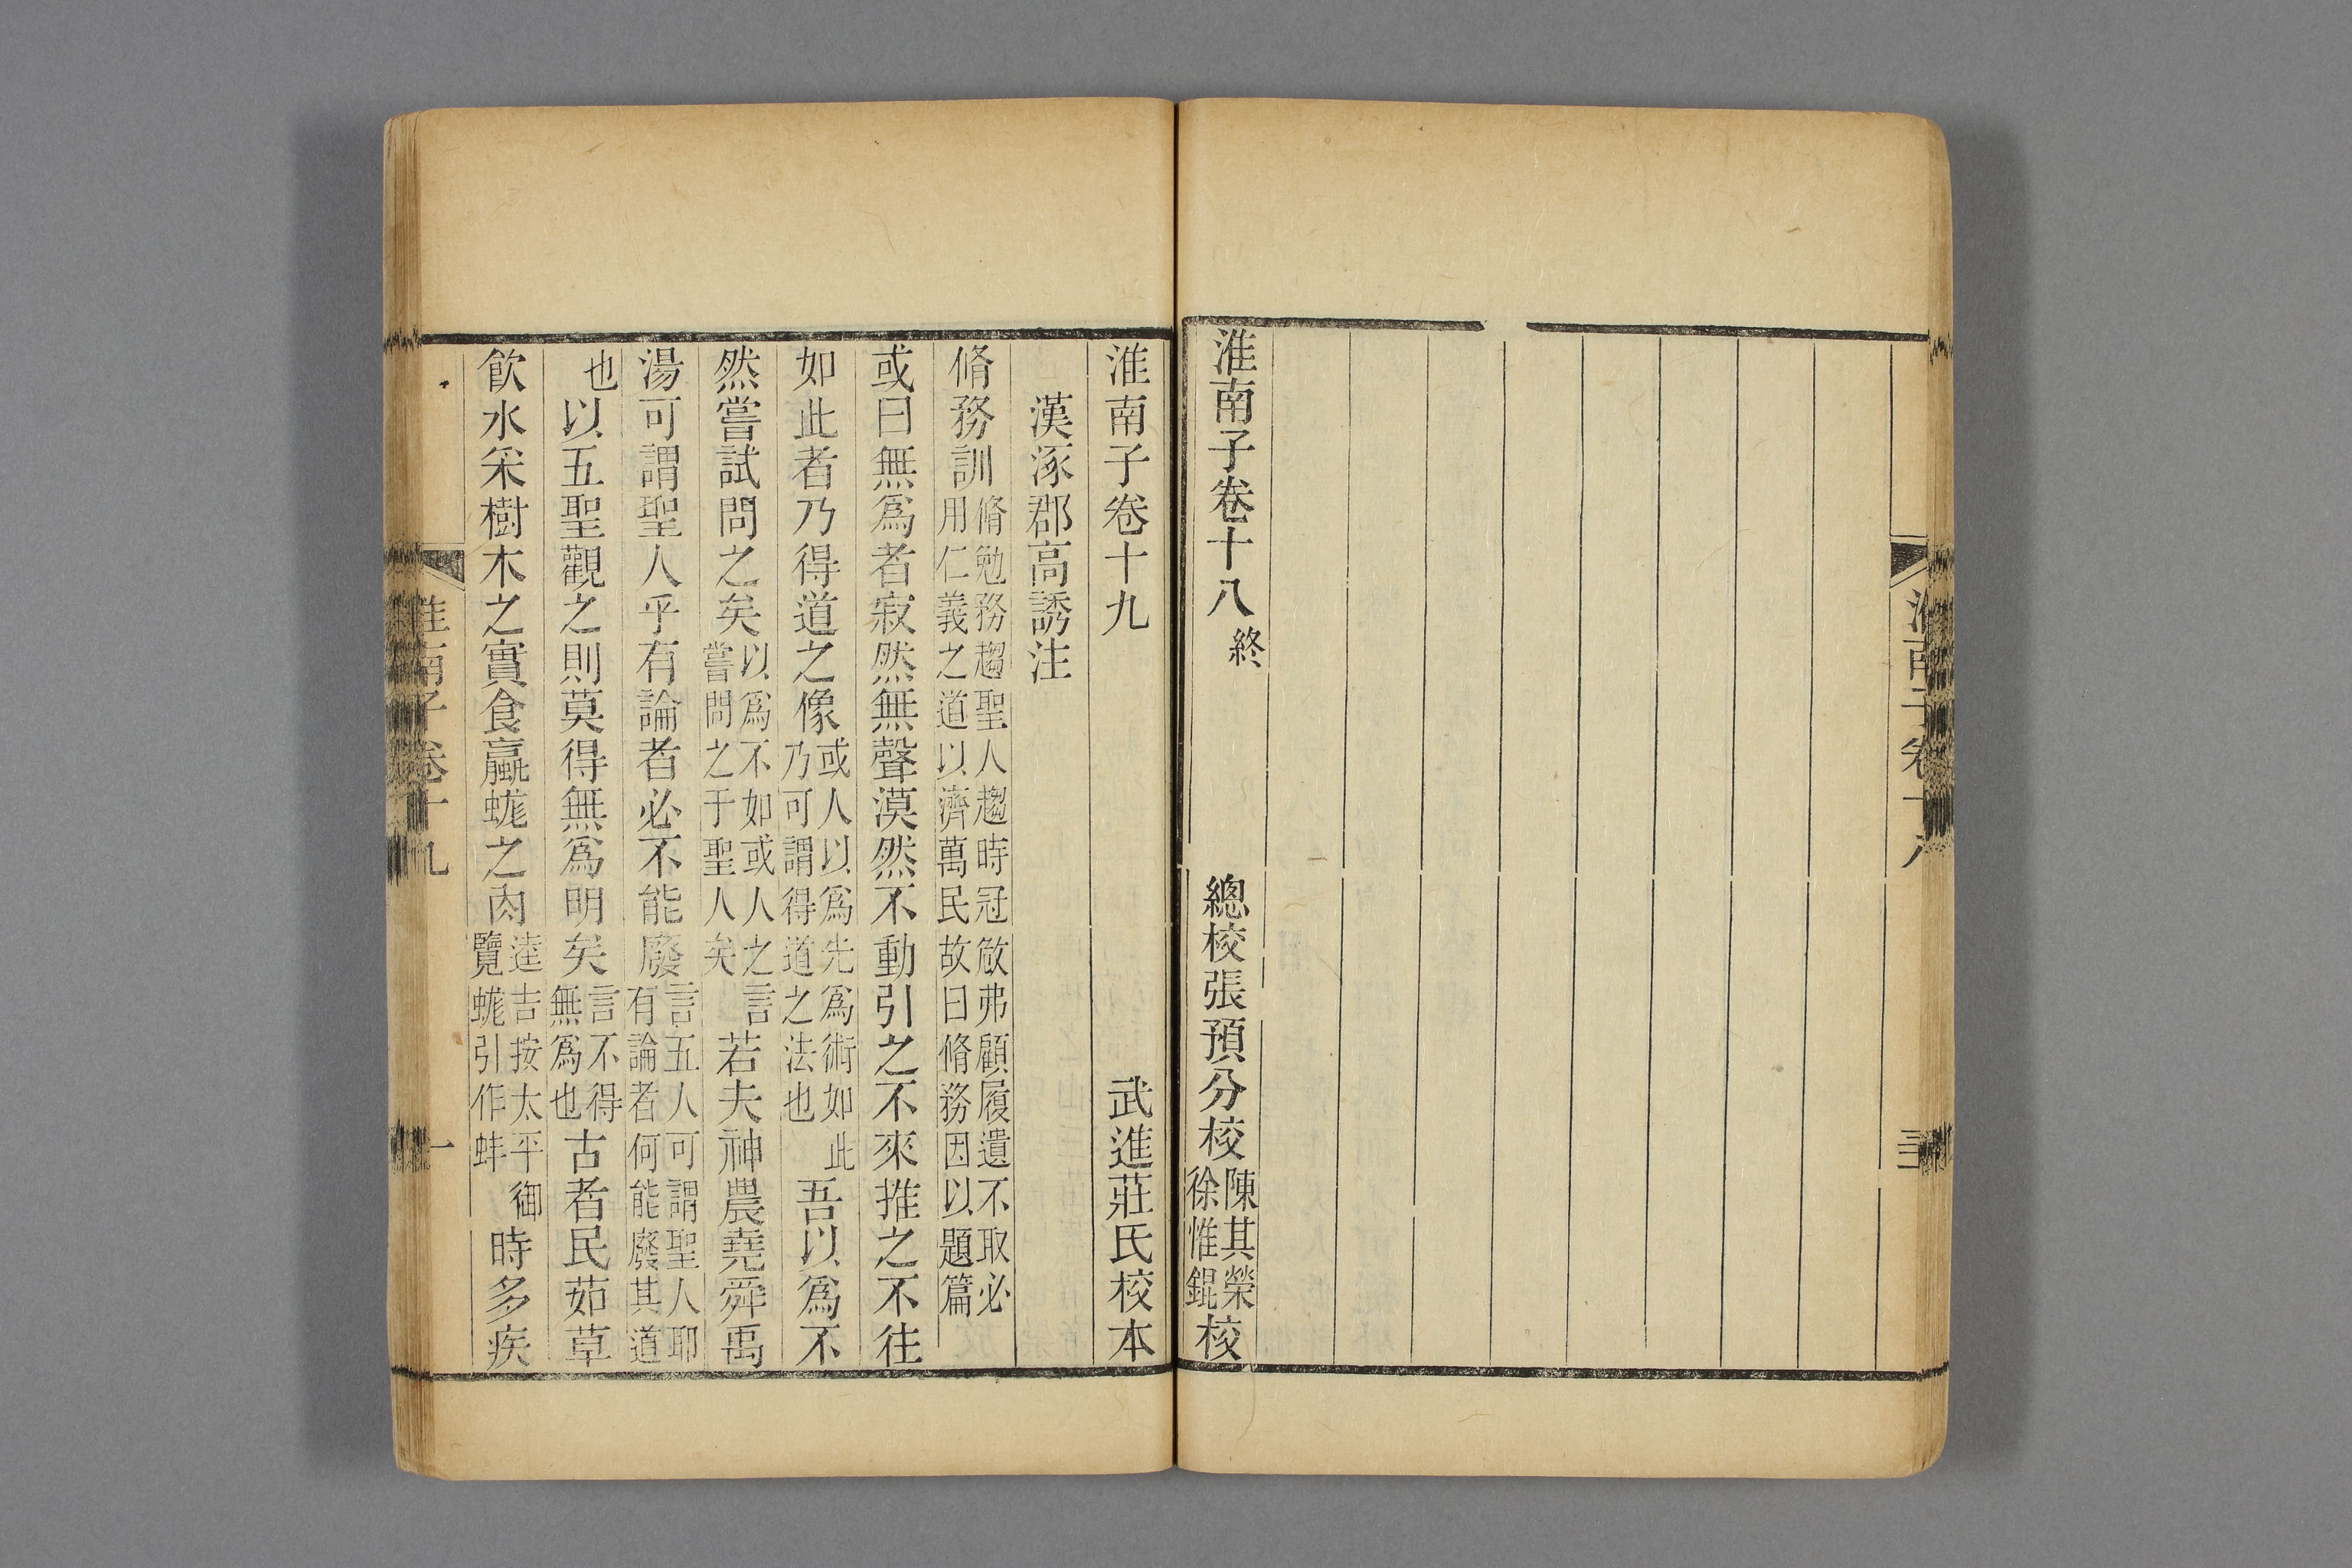 淮南子卷十八終
總校張預分校陳其榮徐惟錕校
淮南子卷十九 武進莊氏校本
漢涿郡高誘注
脩務訓脩勉務趨聖人趨時冠㪉弗顧履遺不取必用仁義之道以濟萬民故曰脩務因以題篇
或曰無爲者寂然無聲漠然不動引之不來推之不往
如此者乃得道之像或人以爲先爲術如此乃可謂得道之法也吾以爲不
然嘗試問之矣以爲不如或人之言嘗問之于聖人矣若夫神農堯舜禹
湯可謂聖人乎有論者必不能廢言五人可謂聖人耶有論者何能廢其道
也以五聖觀之則莫得無爲明矣言不得無爲也古者民茹草
飲水采樹木之實食蠃蛖之肉逵吉按太平御覽蛖引作蚌時多疾
淮南子卷十九 一